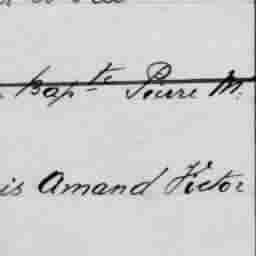 Bapte Pierre M.
is Amand Victor